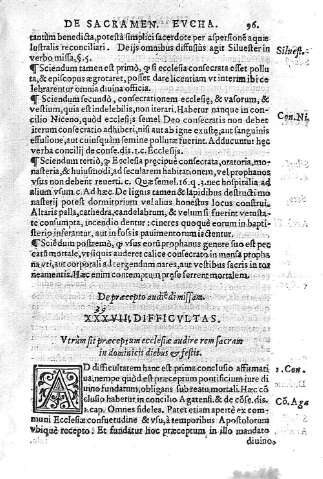 DE SACRAMEN. EVCHA. 96.
tantùm benedicta, potest à simplici sacerdote per aspersionē aquæ
lustralis reconciliari. De ijs omnibus diffusiùs agit Siluester in
verbo missa, §. 5.
Siluest.
¶ Sciendum tamen est primò, q̄ si ecclesia consecrata esset pollu
ta, & episcopus ægrotaret, posset dare licentiam vt interim ibi ce
lebrarentur omnia diuina officia.
¶ Sciendum secundò, consecrationem ecclesię, & vasorum, &
vestium, quia est indelebilis, non iterari. Habetur nanque in con-
cilio Niceno, quòd ecclesijs semel Deo consecratis non debet
Con. Ni.
iterum consecratio adhiberi, nisi aut ab igne exustę, aut sanguinis
effusione, aut cuiusquàm semine pollutæ fuerint. Adducuntur hęc
verba concilij de conse. dis. 1. c. Ecclesijs.
¶ Sciendum tertiò, q̄ Ecclesia præcipuè consecrata, oratoria, mo-
nasteria, & huiusmodi, ad secularem habitationem, vel prophanos
vsus non debent reuerti. c. Quæ semel. 16. q. 1. nec hospitalia ad
alium vsum c. Ad hæc. De lignis tamen & lapidibus destructi mo
nasterij potest dormitorium vel alius honestus locus construi.
Altaris palla, cathedra, candelabrum, & velum si fuerint vetusta-
te consumpta, incendio dentur; cineres quoquè eorum in bapti-
sterio inferantur, aut in fossis pauimentorum iactentur.
¶ Sciendum postremò, q̄ vsus eorū prophanus genere suo est pec
catū mortale, vt siquis auderet calice consecrato in mensa propha
na vti, aut corporalia ad tergendum nares, aut vestibus sacris in tor
neamentis. Hæc enim contemptum præ se ferrent mortalem.
De præcepto audiēdi missam.
XXXVII, DIFFICVLTAS.
Vtrùm sit præceptum ecclesiæ audire rem sacram
in dominicis diebus & festis.
AD difficultatem hanc est prima conclusio affirmati
1. Con.
ua, nempe quòd est præceptum pontificium iure di
uino fundatum, obligans sub reatu mortali. Hæc cō
clusio habetur in concilio Agatensi, & de cōse. dis.
Cō. Aga
1. cap. Omnes fideles. Patet etiam apertè ex com-
muni Ecclesiæ consuetudine & vsu, à temporibus Apostolorum
vbique recepto. Et fundatur hoc præceptum in illo mandato
diuino,